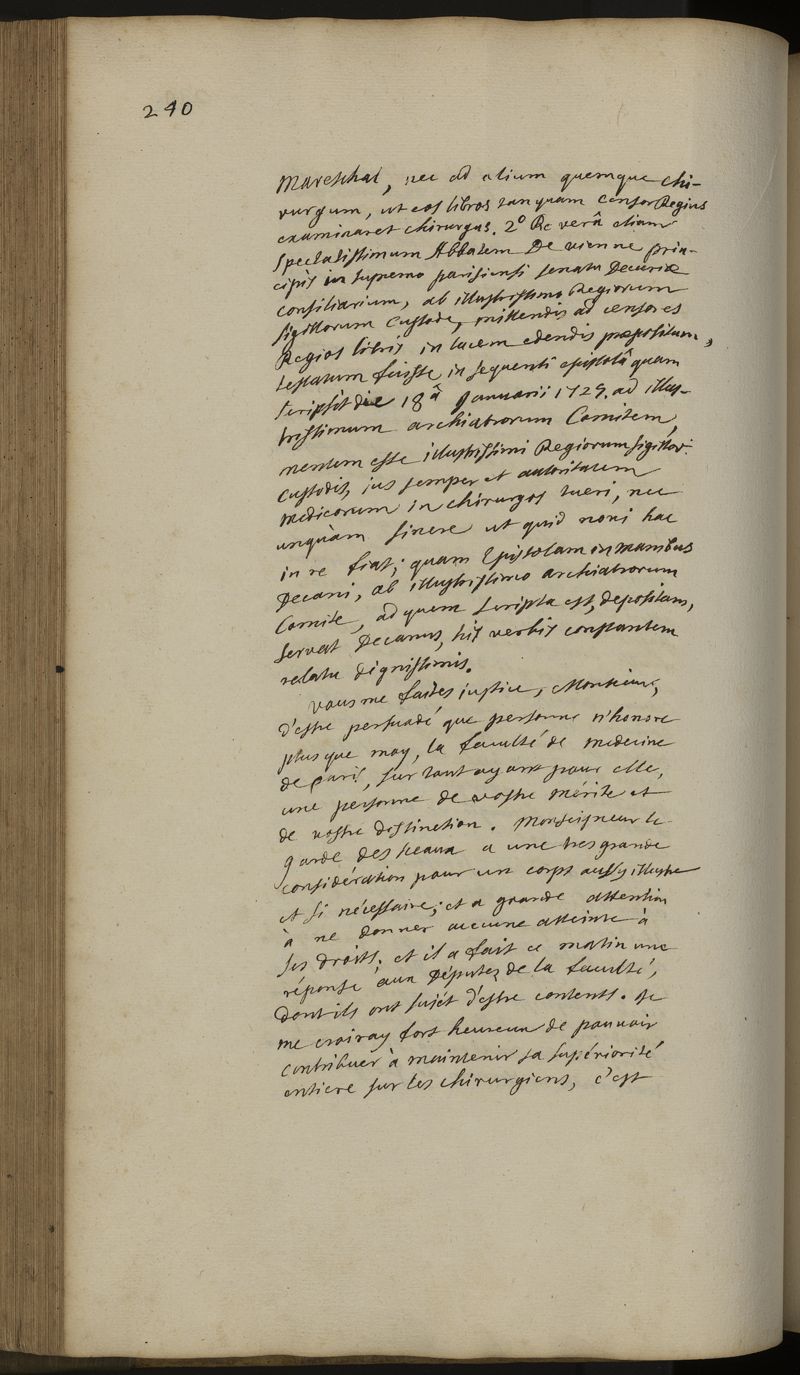 240
Mareschal, nec ad alium quemque chi-
rurgum, ut eos libros tanquam Censor Regius
examinaret chirurgus. 2° Re verâ etiam
spectatissimum Abbatem De vienne prin-
cipis in supremo parisiensi senatu Decuriæ
consiliarium, ab illustrissimo Regiorum
sigillorum Custode, mittendis ad censores
Regios libris in lucem edendis præpositum,
testatum fuisse in sequenti epistolâ quam
scripsit die 18â Januarii 1729. ad illus-
trissimum archiatrorum Comitem,
mentem esse illustrissimi Regiorum sigillor.
Custodis, jus semper et autoritatem
medicorum in chirurgos tueri, nec
unquàm sinere ut quid novi hac
in re fiat; quam Epistolam in manibus
Decani, ab illustrissimo archiatrorum
Comite, ad quem scripta est, depositam,
servat Decanus, his verbis constantem
relatu dignissimis.
Vous me faites justice, Monsieur,
d'estre persuadé que personne n'honore
plus que moy, la faculté de medecine
de paris, sur tout ayant pour elle,
une personne de vostre mérite et
de vostre distinction. Monseigneur le
garde des sceaux a une tres grande
considération pour un corps aussy illustre
et si nécessaire; et a grande attention
à ne donner aucune atteinte à
ses droits. et il a fait ce matin une
réponse aux Députez de la faculté,
dont ils ont sujét d'estre contents. Je
me croiray fort heureux de pouvoir
contribuer à maintenir sa supériorité
entiere sur les chirurgiens, c'est